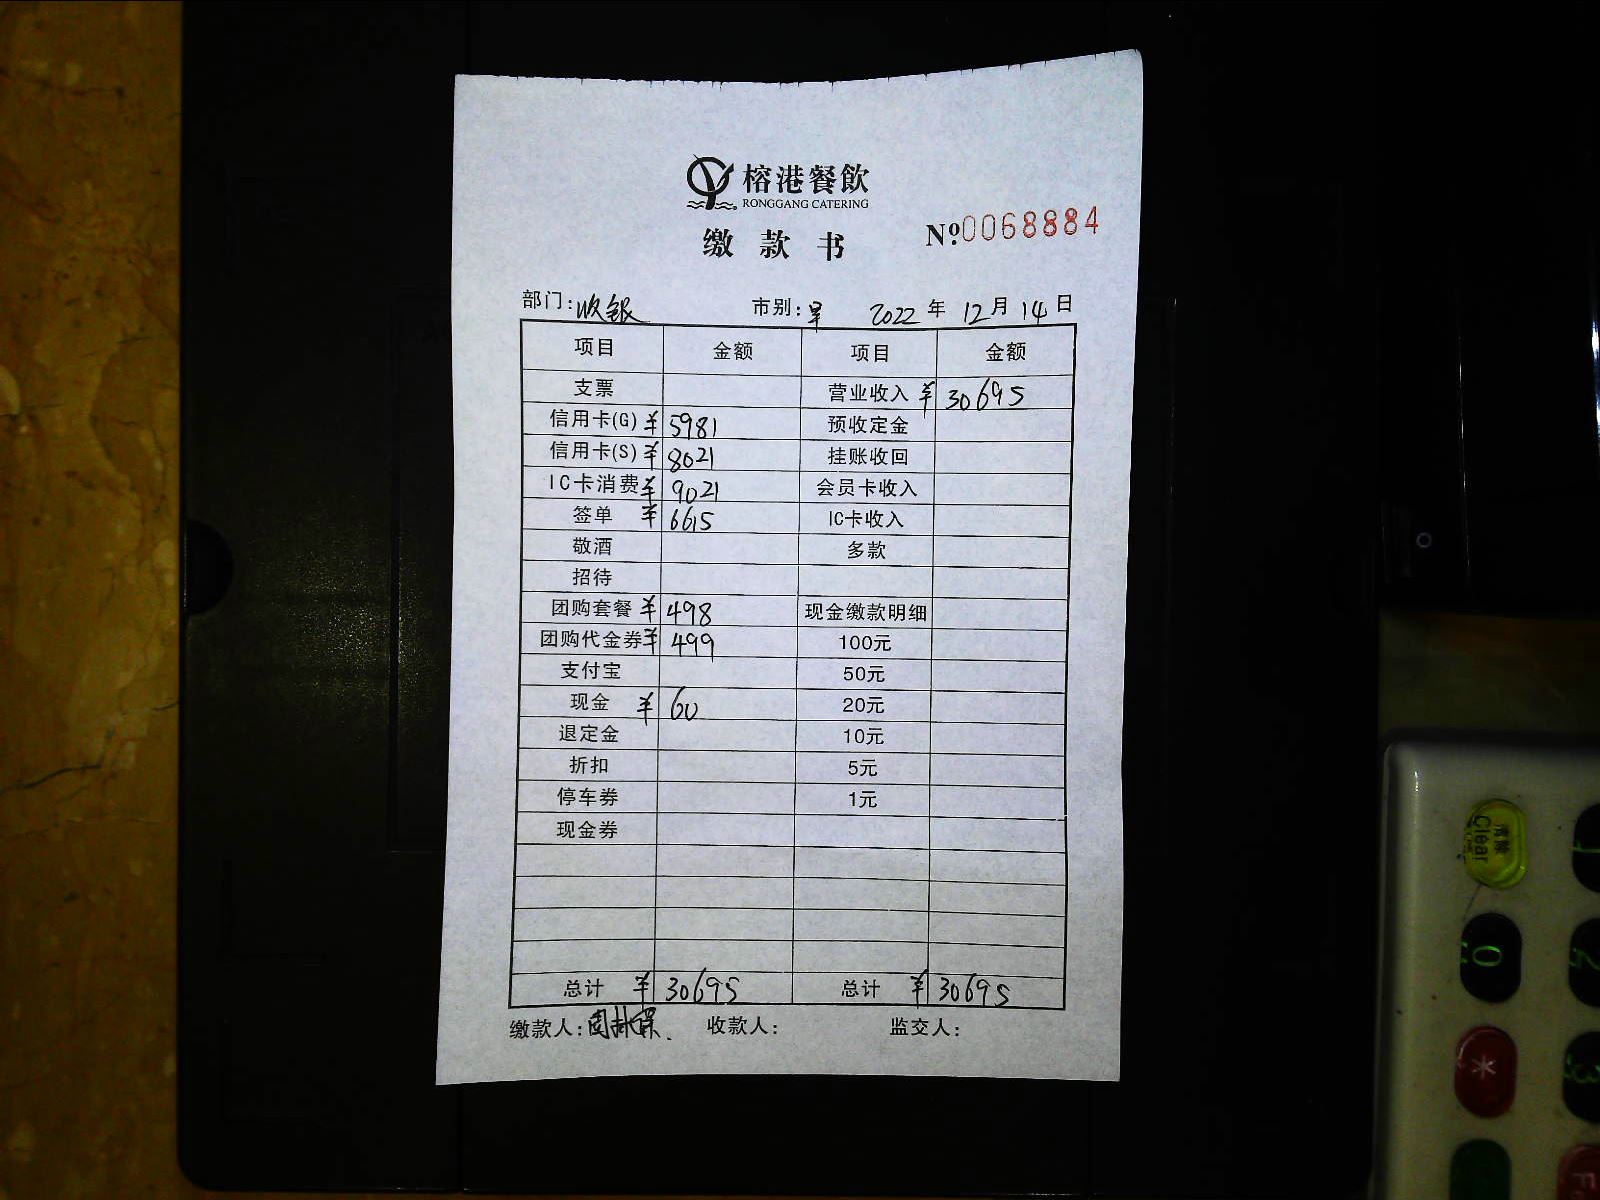 榕港餐飲
RONGGANG CATERING
缴款书
Nº.0068884
部门:收银 市别:早 2022年12月14日
项目 金额 项目 金额
支票 营业收入 ¥30695
信用卡(G) ¥5981 预收定金
信用卡(S) ¥8021 挂账收回
IC卡消费 ¥9021 会员卡收入
签单 ¥6615 IC卡收入
敬酒 多款
招待
团购套餐 ¥498 现金缴款明细
团购代金券 ¥499 100元
支付宝 50元
现金 ¥60 20元
退定金 10元
折扣 5元
停车券 1元
现金券
总计 ¥30695 总计 ¥30695
缴款人: 收款人: 监交人:
清除
Clear
0
2
3
*